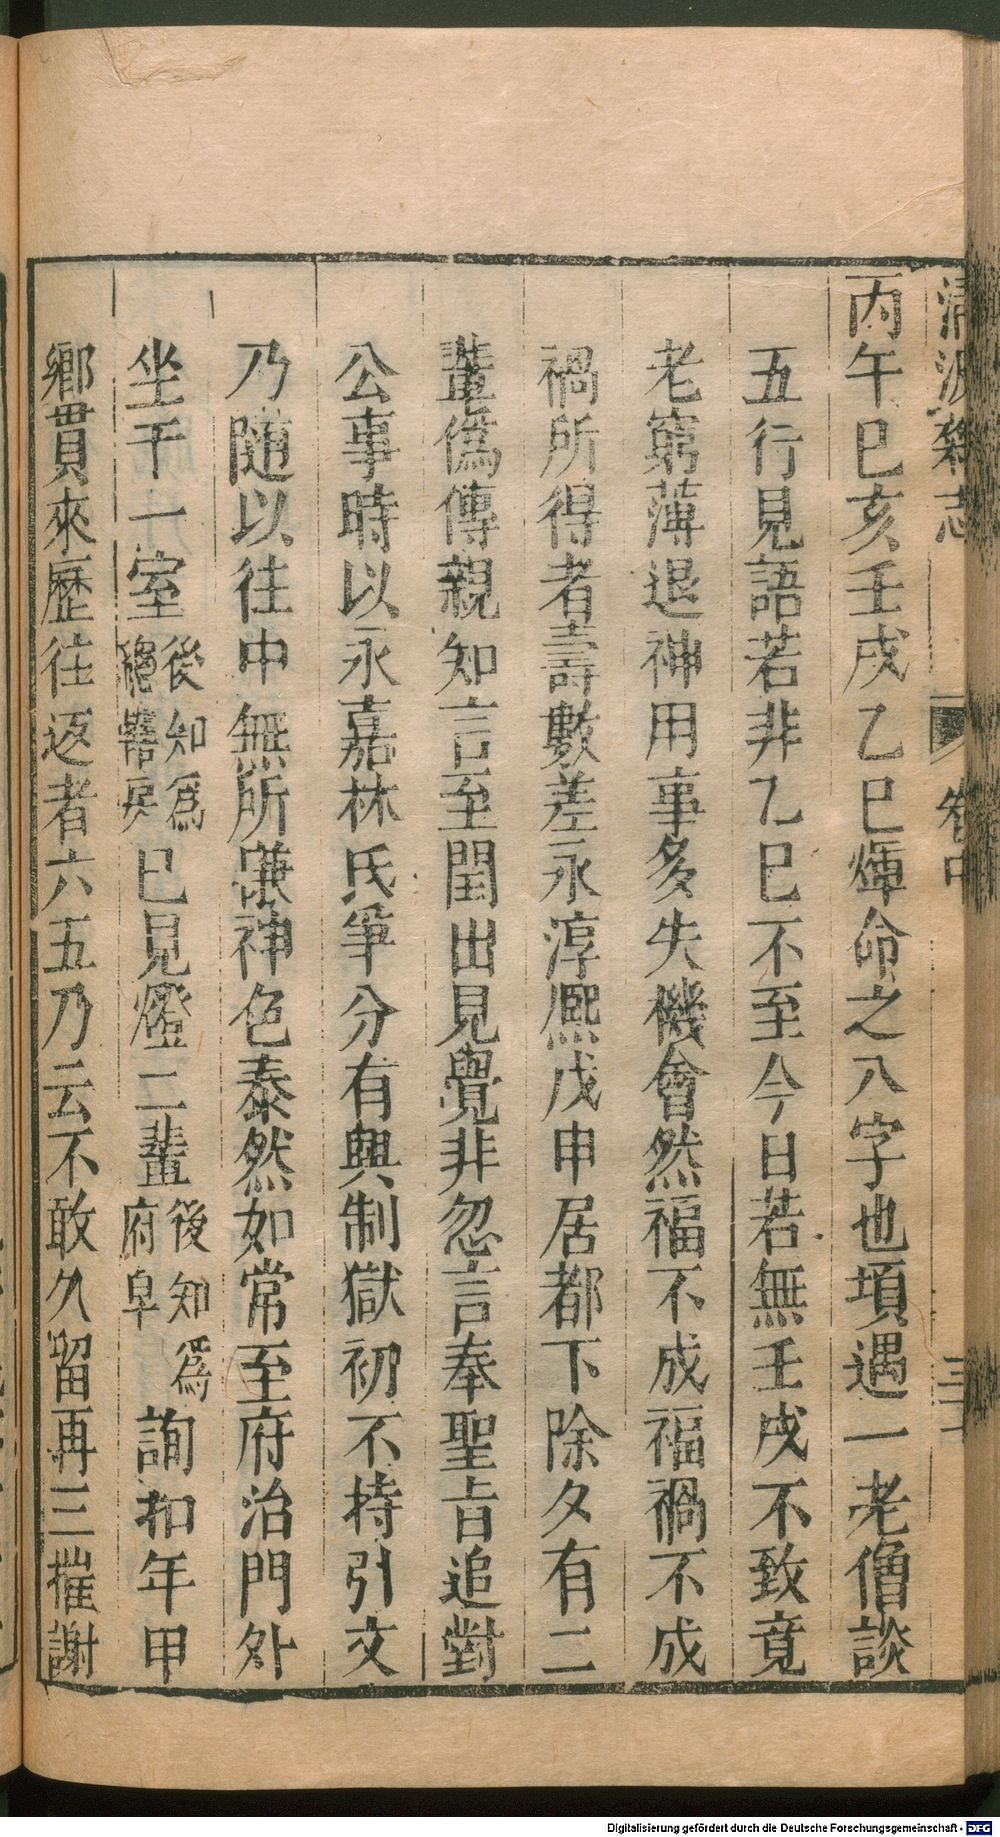 清波雜志 卷中
丙午巳亥壬戌乙巳煇命之八字也頃遇一老僧談
五行見語若非乙巳不至今日若無壬戌不致竟
老窮薄退神用事多失機會然福不成福禍不成
禍所得者壽數差永淳熈戊申居都下除夕有二
輩僞傳親知言至閨出見覺非忽言奉聖旨追對
公事時以永嘉林氏爭分有興制獄初不持引文
乃隨以往中無所慊神色泰然如常至府治門外
坐于一室後知爲總轄房已見燈二輩後知爲府皁詢扣年甲
鄉貫來歷往返者六五乃云不敢久留再三摧謝
Digitalisierung gefördert durch die Deutsche Forschungsgemeinschaft - DFG